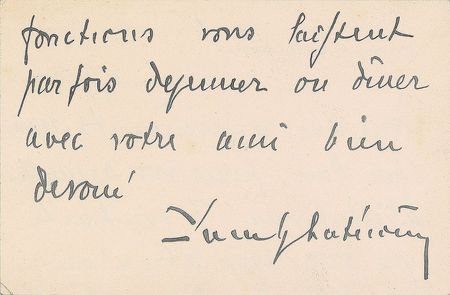 fonctions vous laissent
parfois dejeuner ou dîner
avec votre ami bien
devoué